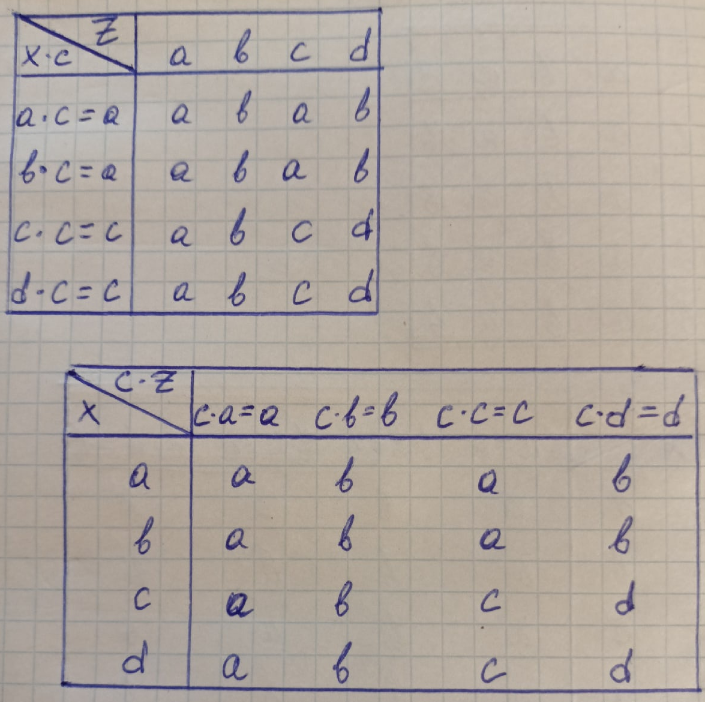 z
x·c a b c d
a·c=a a b a b
b·c=a a b a b
c·c=c a b c d
d·c=c a b c d
c·z
x c·a=a c·b=b c·c=c c·d=d
a a b a b
b a b a b
c a b c d
d a b c d